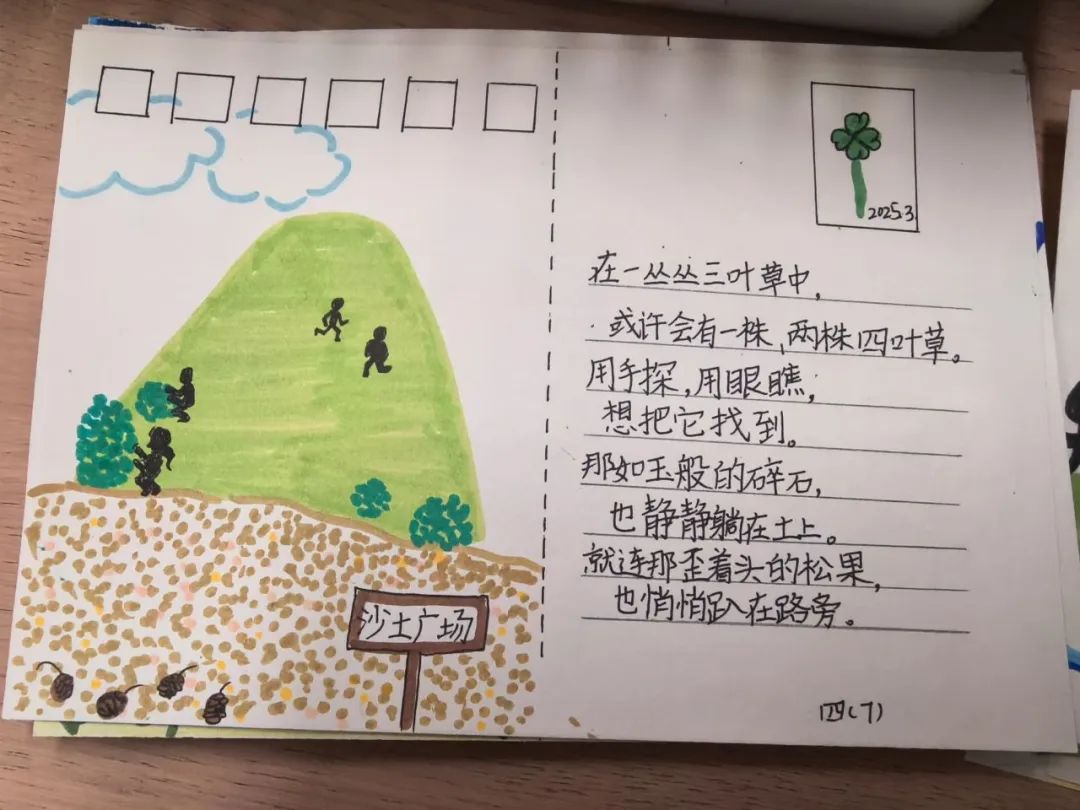 2025.3
在一丛丛三叶草中,
或许会有一株、两株四叶草。
用手探,用眼瞧,
想把它找到。
那如玉般的碎石,
也静静躺在土上。
就连那歪着头的松果,
也悄悄趴在路旁。
沙土广场
四(7)